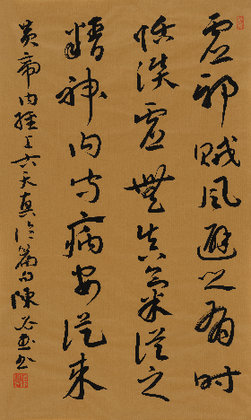 虚邪贼风避之有时
恬淡虚无真气从之
精神内守病安从来
黄帝内经上古天真论篇句陈